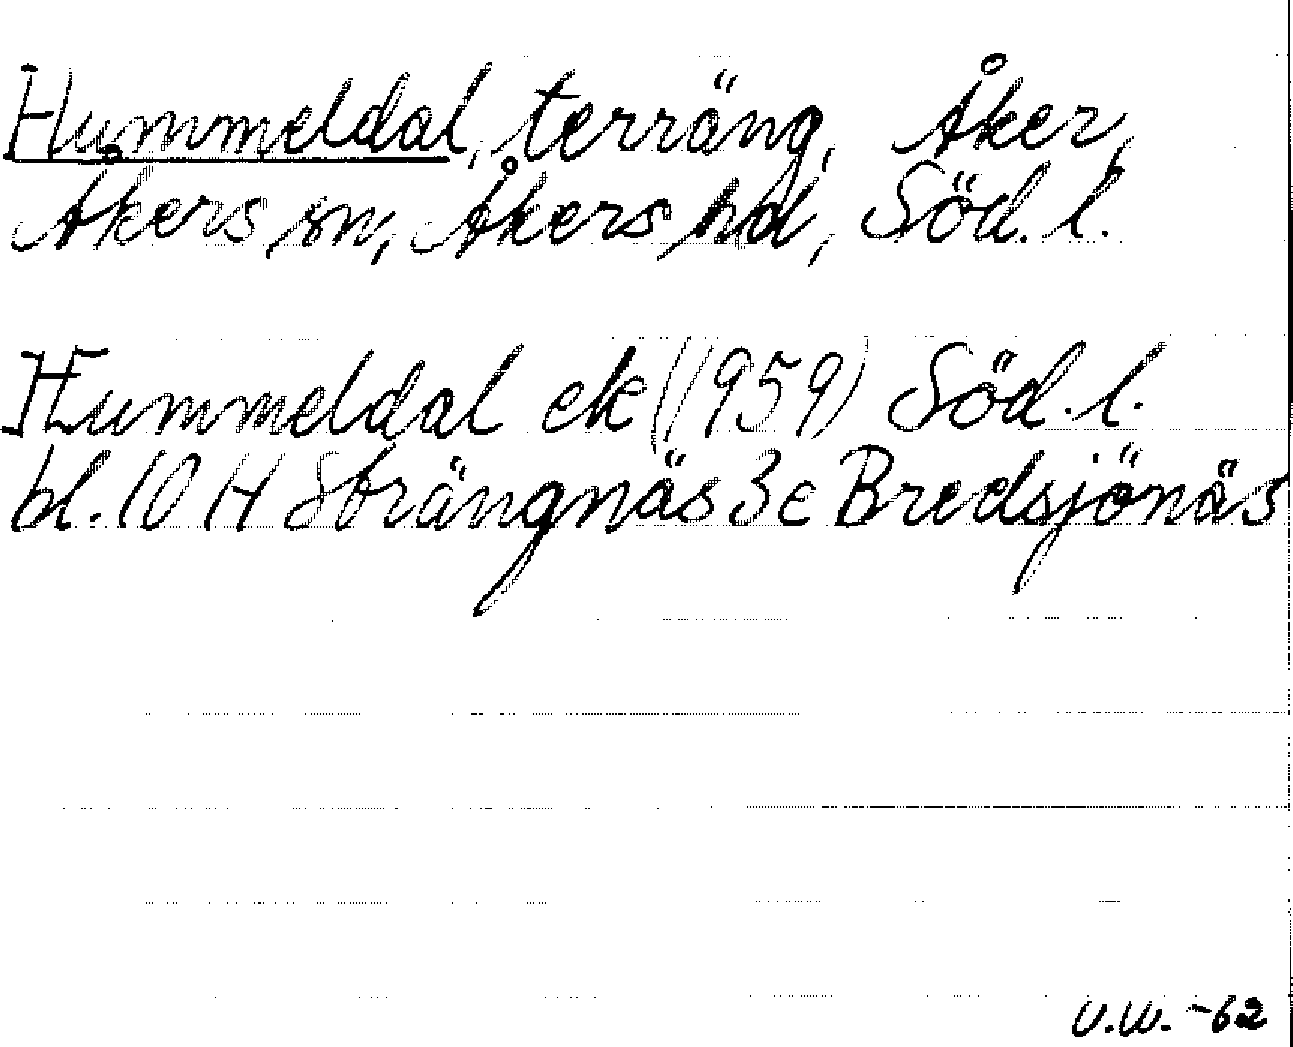 Hummeldal, terräng, Åker,
Åkers sn, Åkers hd, Söd. l.
Hummeldal ek (1959) Söd. l.
bl. 10 H Strängnäs 3 e Bredsjönäs
U.W. -62